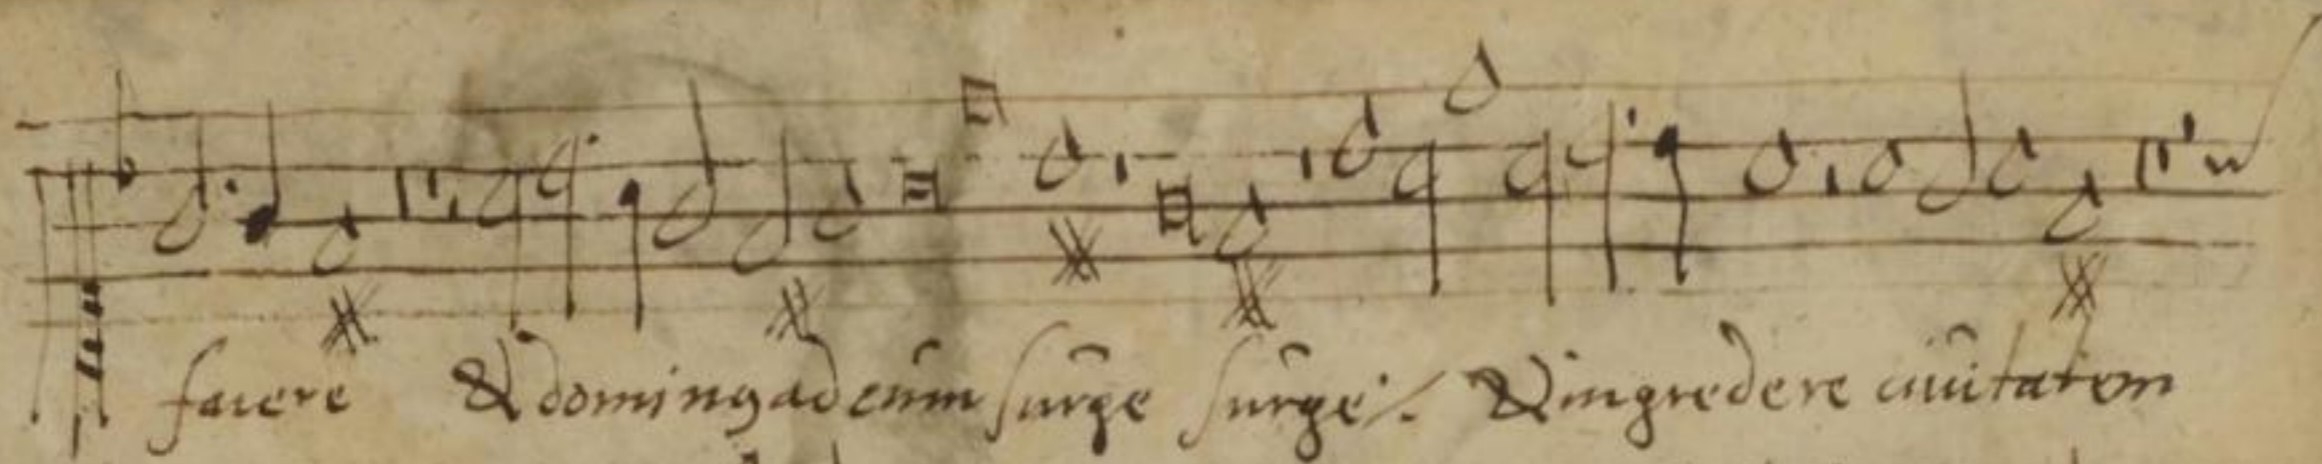 facere & domin9 ad eūm sūrge sūrge ⁒ & ingredere ciūitatem